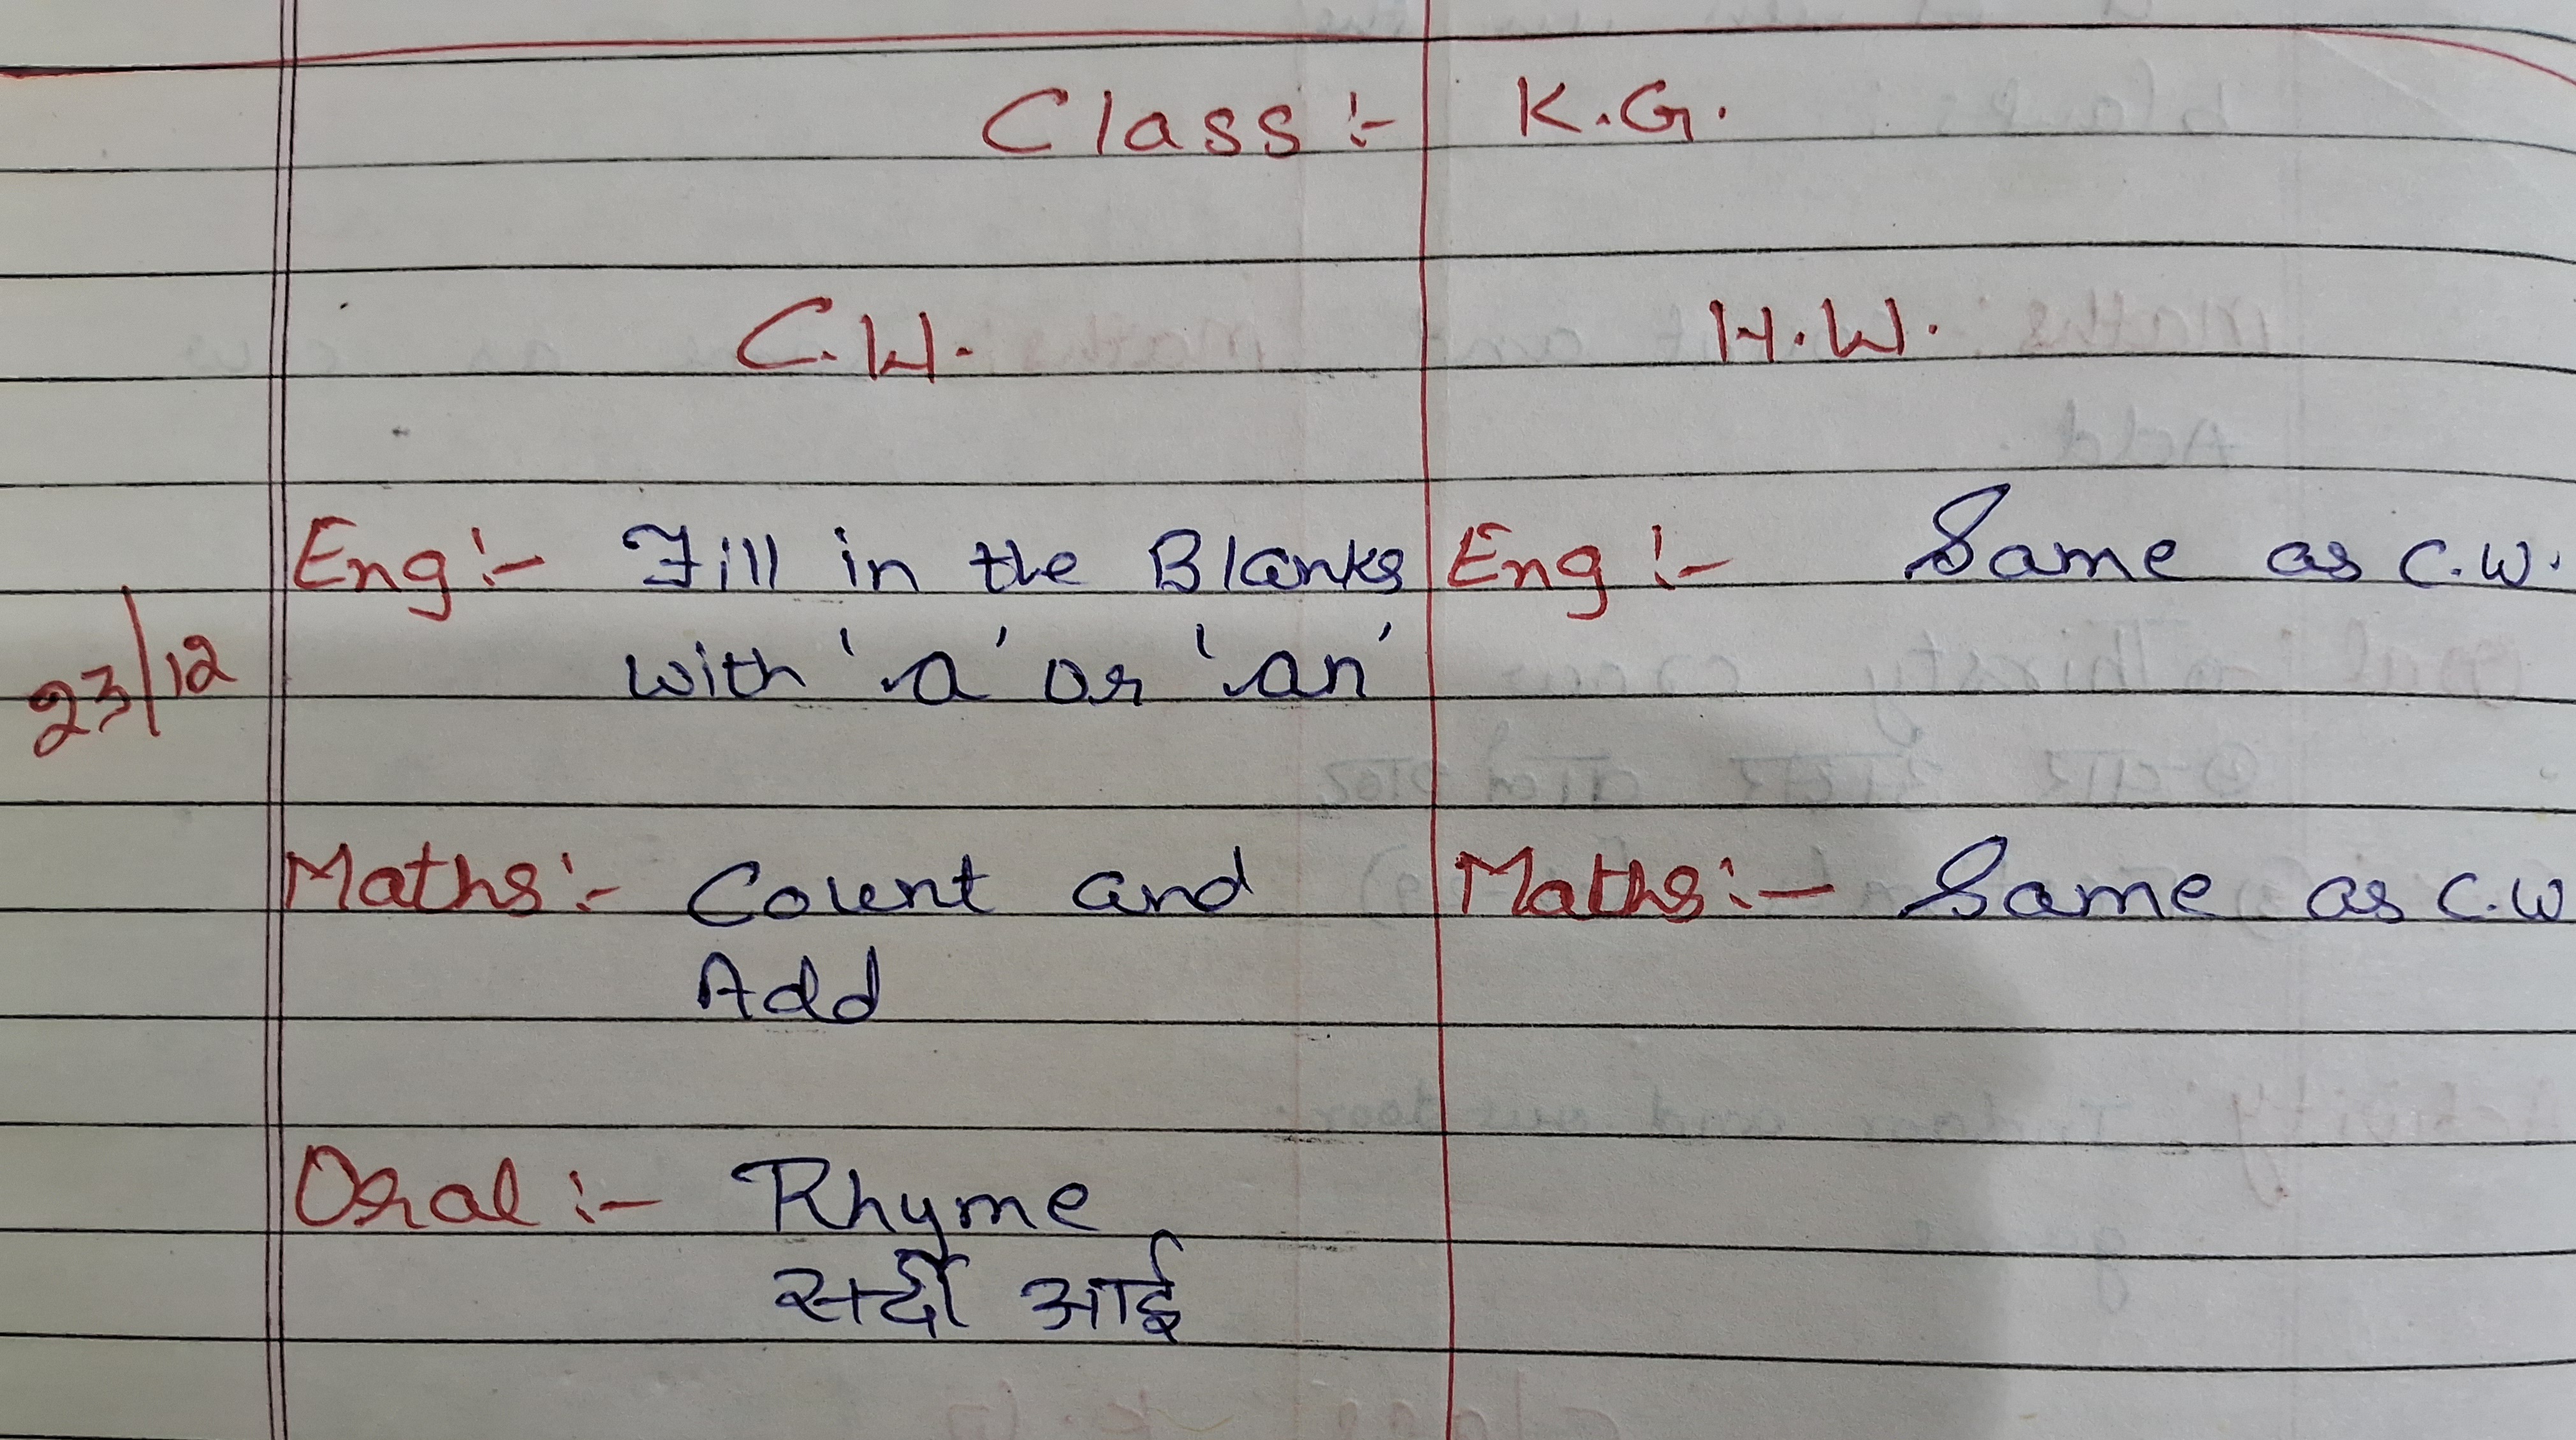 Class :- K.G.
C.W. H.W.
Eng :- Fill in the Blanks Eng :- Same as C.W.
with 'a' or 'an'
23/12
Maths :- Count and Maths :- Same as C.W
Add
Oral :- Rhyme
सर्दी आई